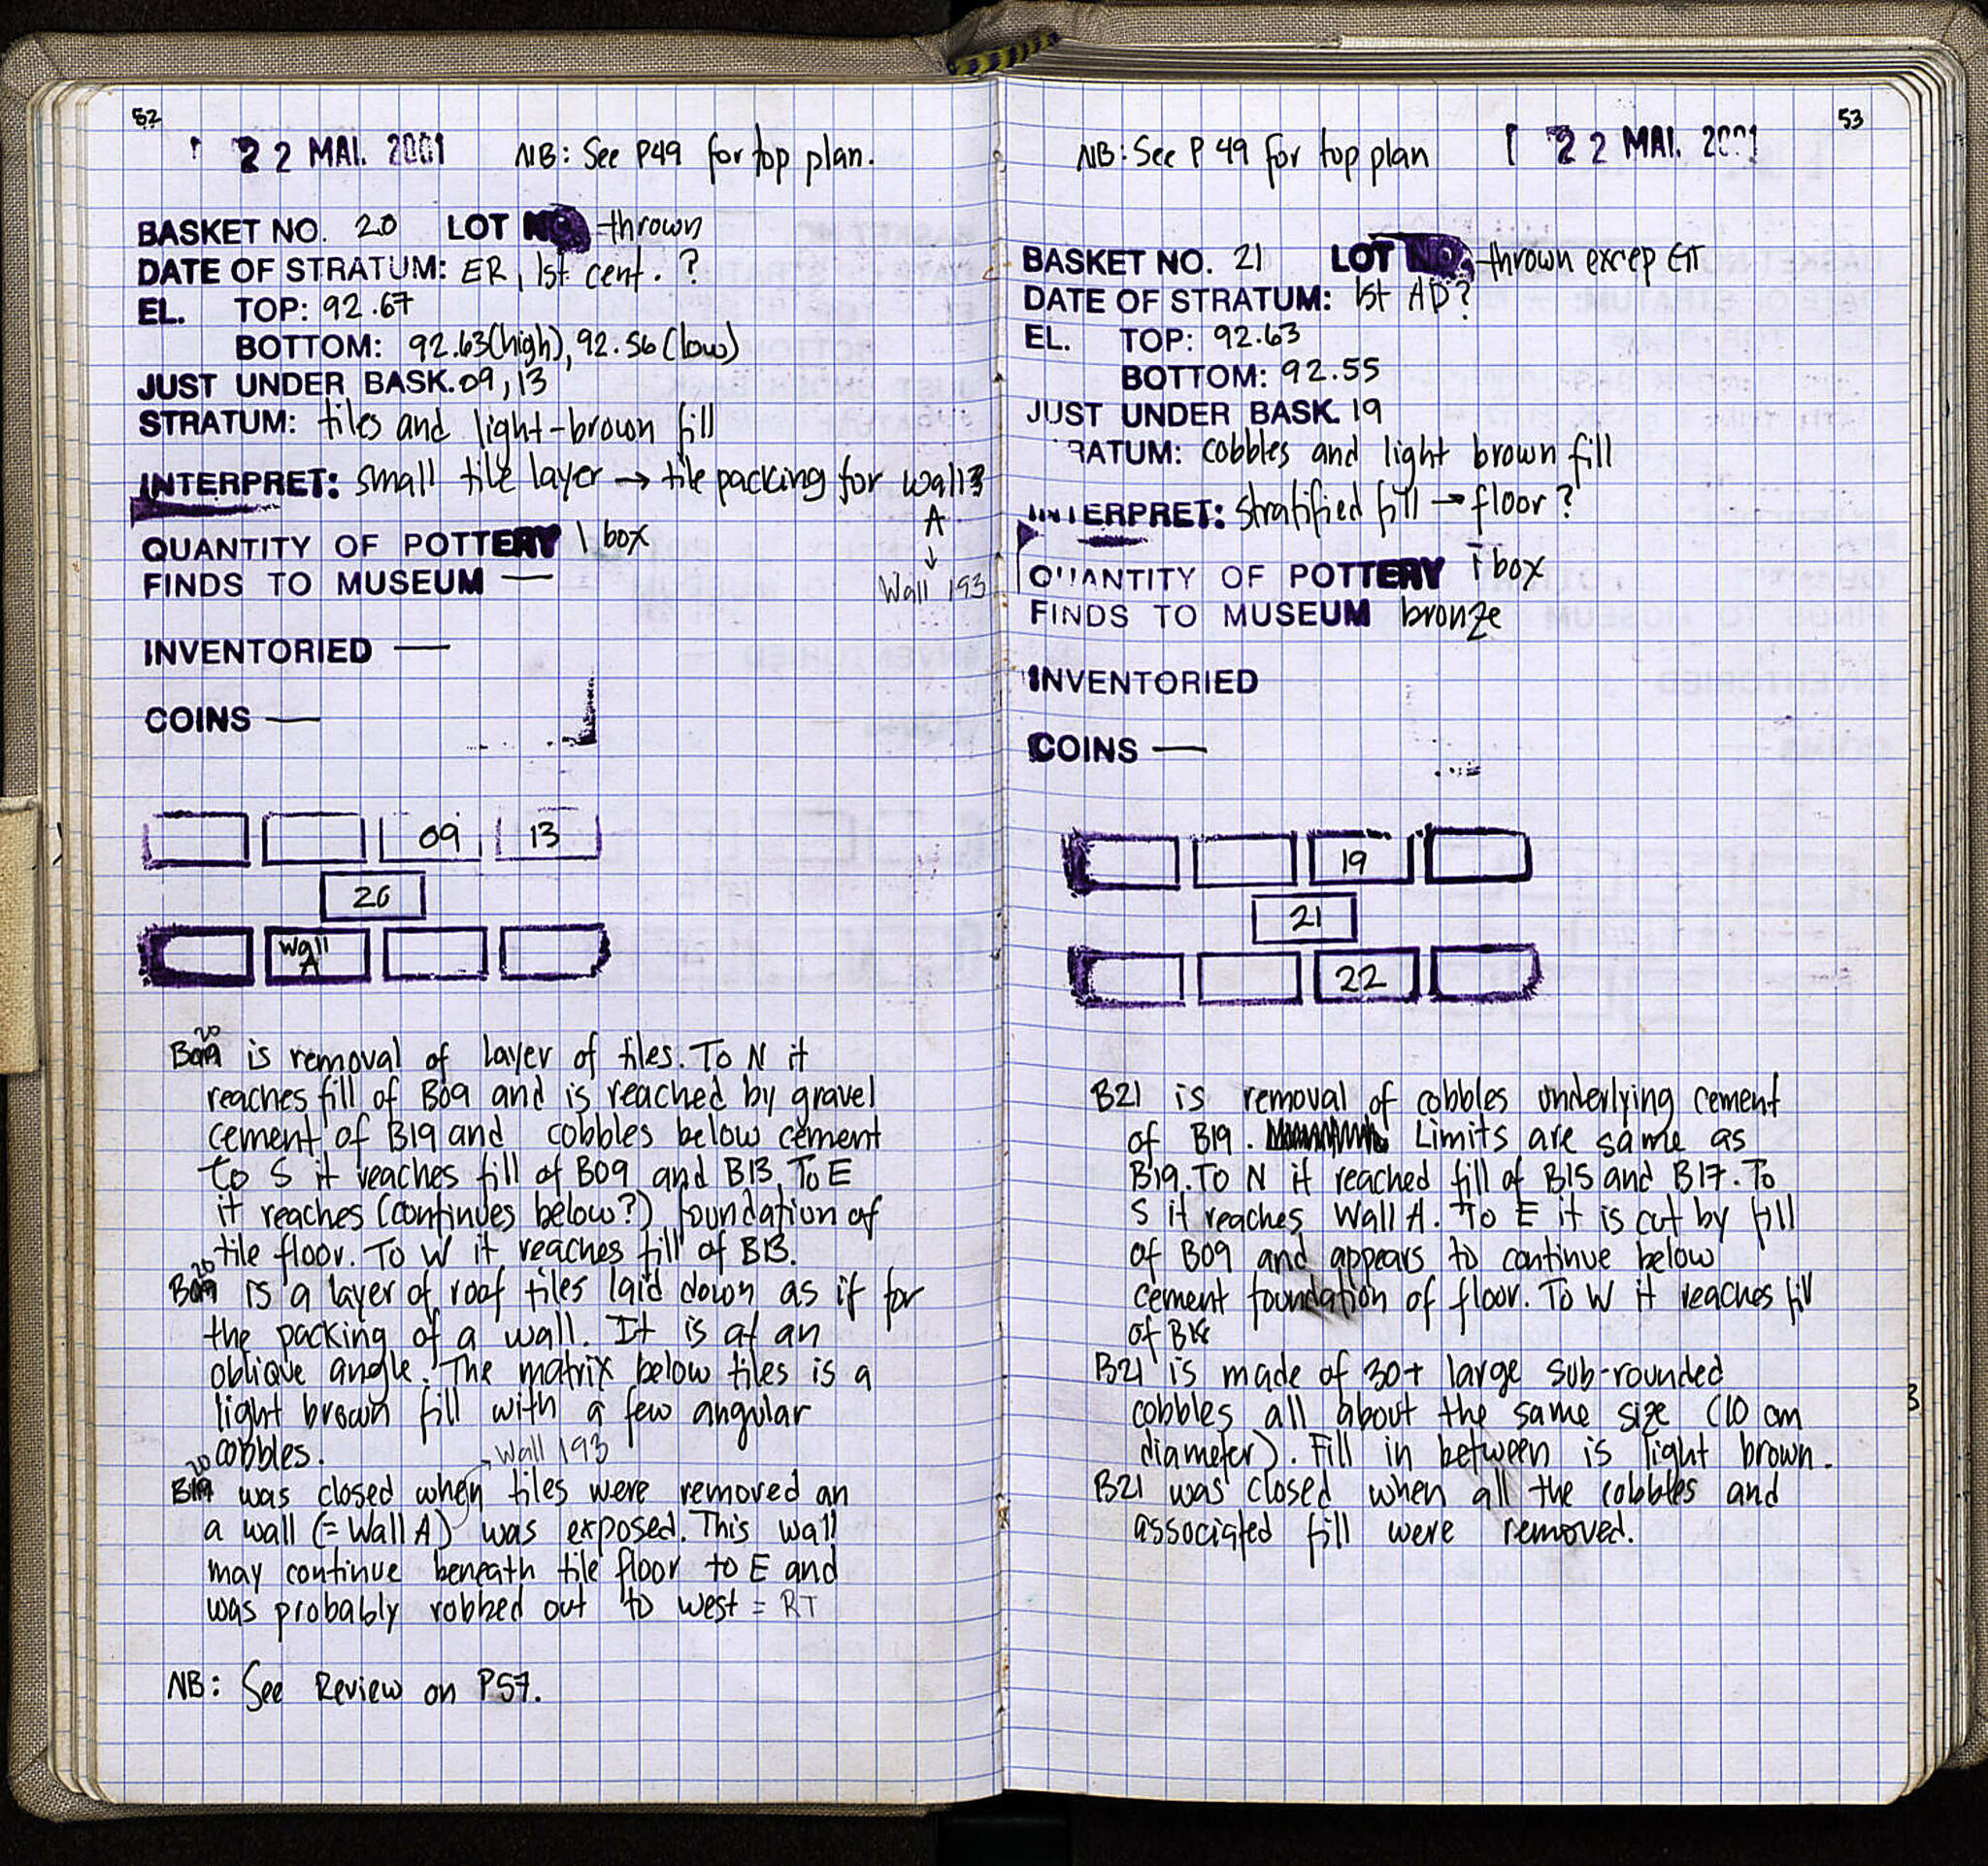 52
22 MAI. 2001 NB: See P49 for top plan.
BASKET NO. 20 LOT NO. thrown
DATE OF STRATUM: ER, 1st cent. ?
EL. TOP: 92.67
BOTTOM: 92.63(high), 92.56 (low)
JUST UNDER BASK. 09, 13
STRATUM: tiles and light-brown fill
INTERPRET: small tile layer → tile packing for wall
A
↓
Wall 193
QUANTITY OF POTTERY 1 box
FINDS TO MUSEUM —
INVENTORIED —
COINS —
09 13
20
Wall
A
B20 is removal of layer of tiles. To N it
reaches fill of B09 and is reached by gravel
cement of B19 and cobbles below cement
to S it reaches fill of B09 and B13. To E
it reaches (continues below?) foundation of
tile floor. To W it reaches fill of B13.
B20 is a layer of roof tiles laid down as if for
the packing of a wall. It is at an
oblique angle. The matrix below tiles is a
light brown fill with a few angular
cobbles.
Wall 193
B20 was closed when tiles were removed an
a wall (= Wall A) was exposed. This wall
may continue beneath tile floor to E and
was probably robbed out to west = RT
NB: See Review on P57.
53
NB: See P 49 for top plan 22 MAI. 2001
BASKET NO. 21 LOT NO. thrown excep
DATE OF STRATUM: 1st AD?
EL. TOP: 92.63
BOTTOM: 92.55
JUST UNDER BASK. 19
RATUM: cobbles and light brown fill
INTERPRET: stratified fill → floor?
QUANTITY OF POTTERY 1 box
FINDS TO MUSEUM bronze
INVENTORIED
COINS —
19
21
22
B21 is removal of cobbles underlying cement
of B19. Limits are same as
B19. To N it reached fill of B15 and B17. To
S it reaches Wall A. To E it is cut by fill
of B09 and appears to continue below
cement foundation of floor. To W it reaches fill
of
B21 is made of 30+ large sub-rounded
cobbles all about the same size (10 cm
diameter). Fill in between is light brown.
B21 was closed when all the cobbles and
associated fill were removed.